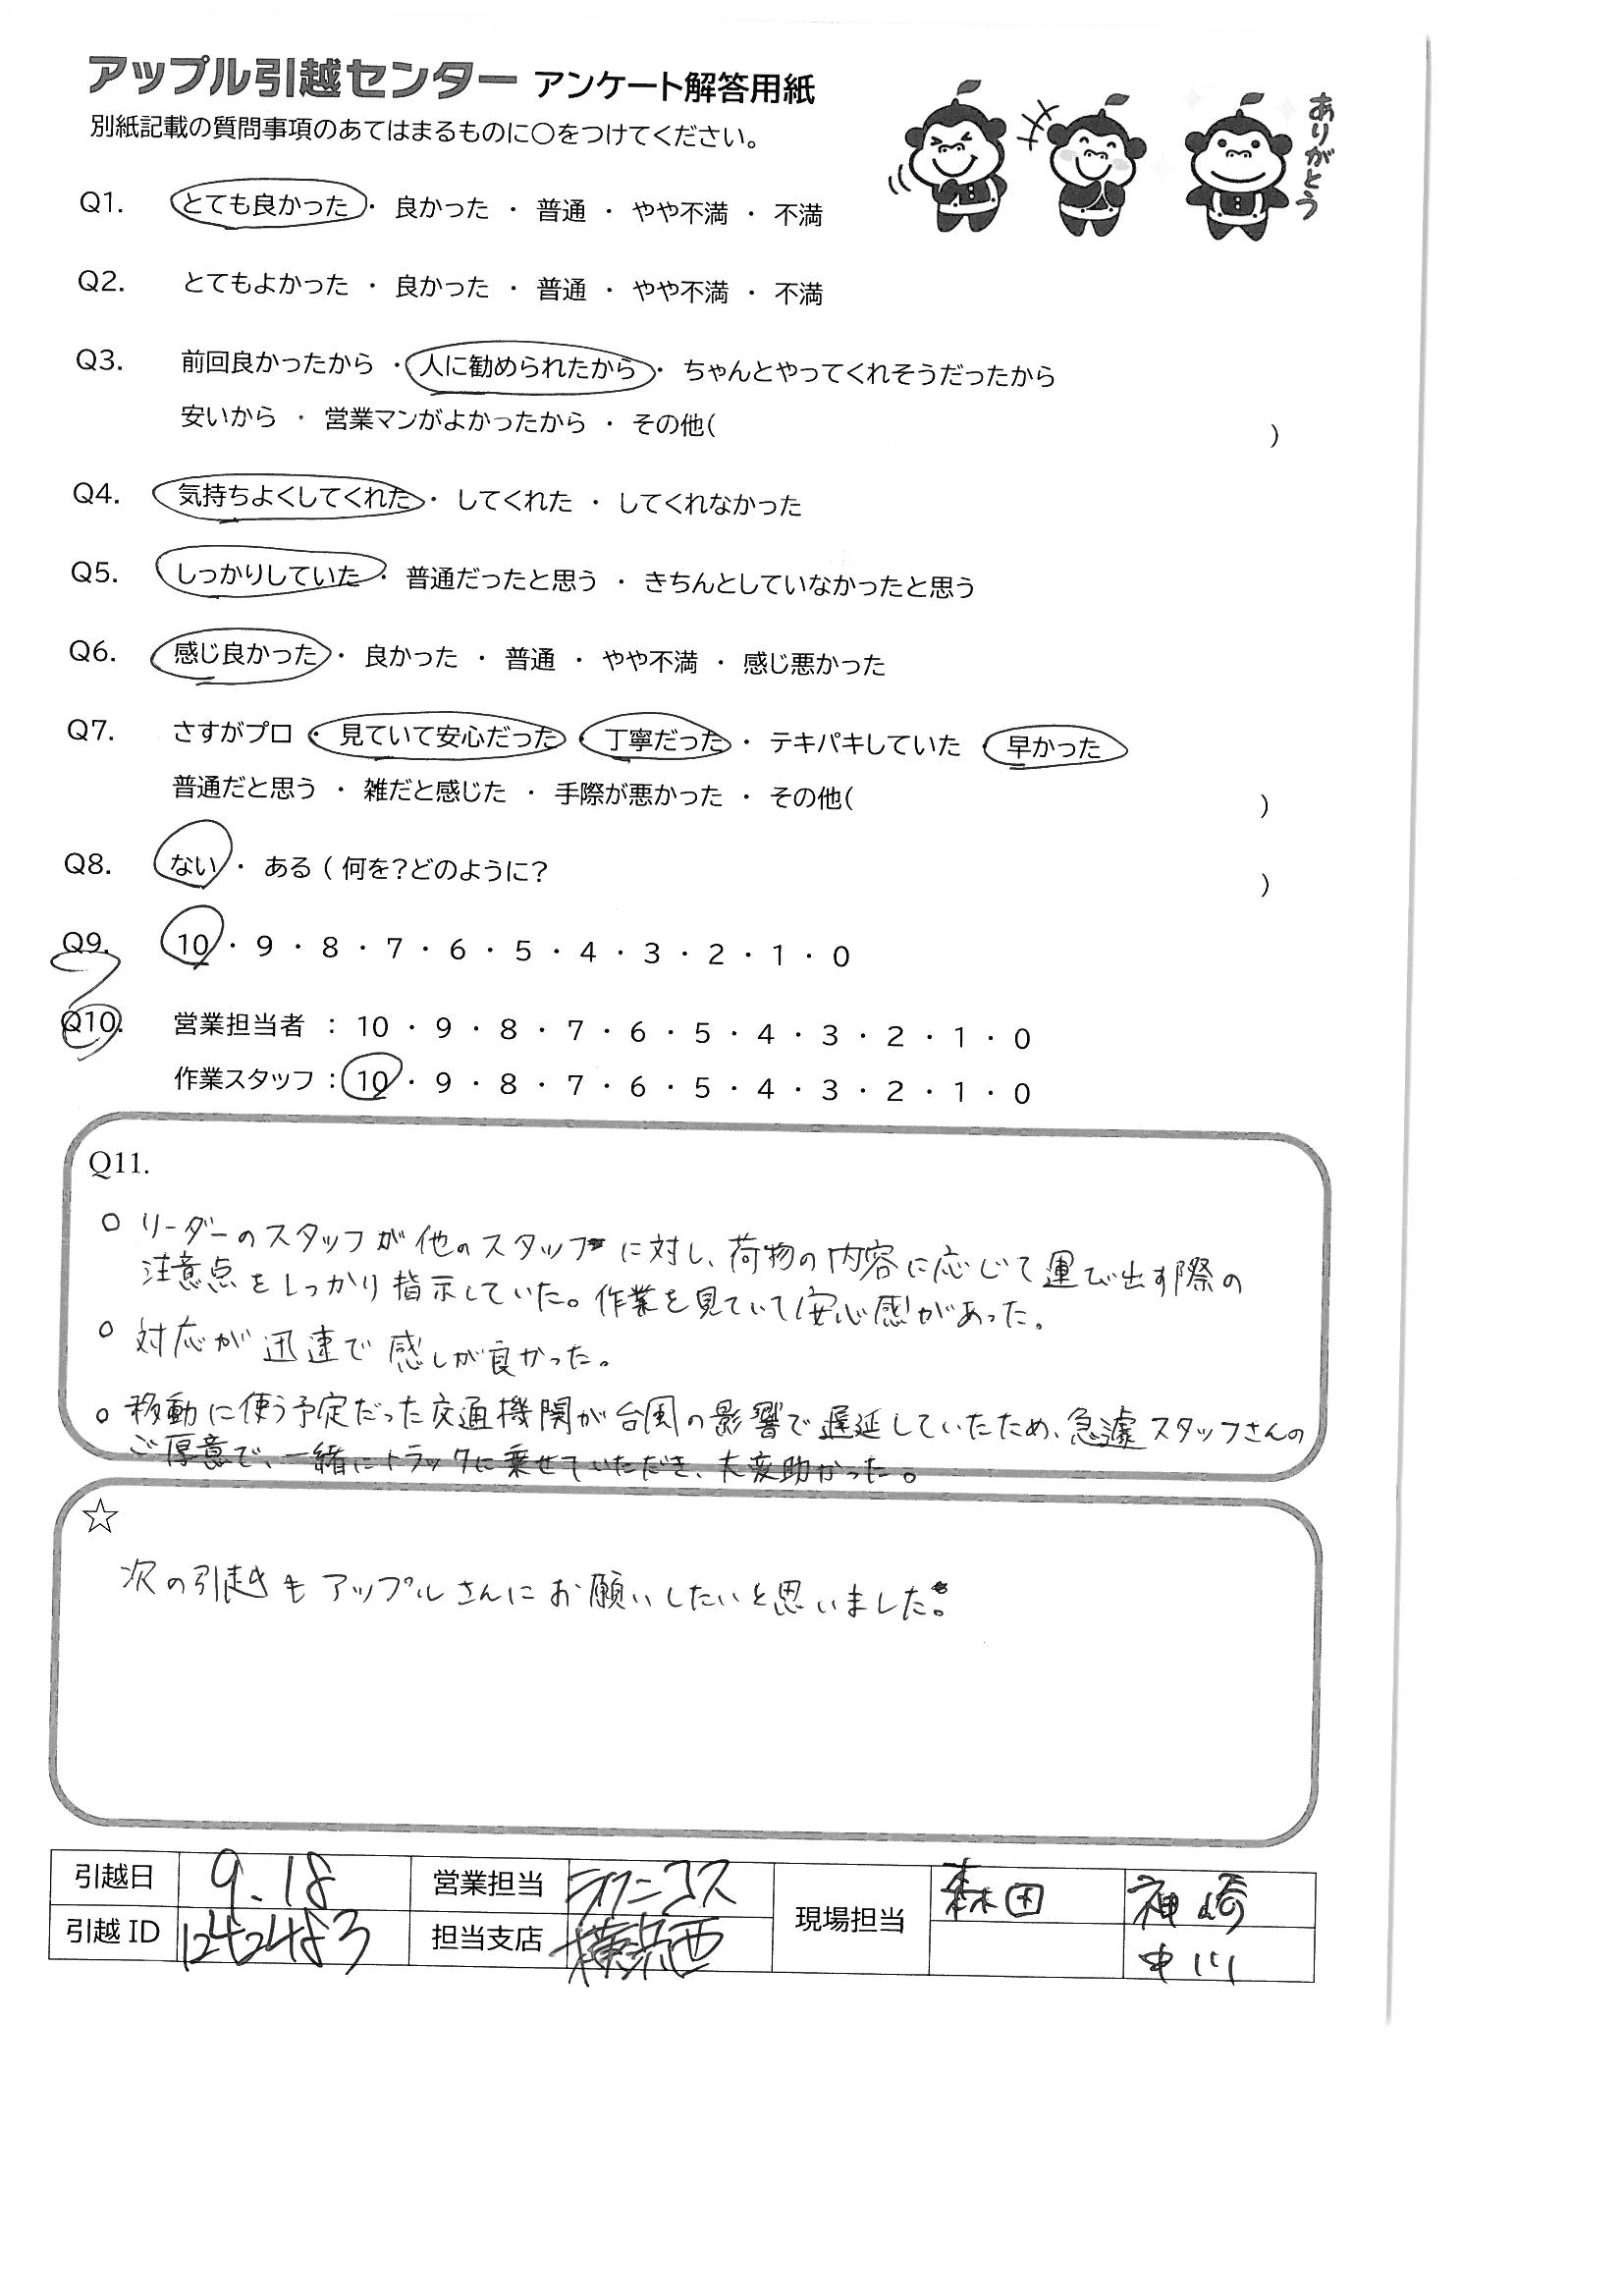 アップル引越センター アンケート解答用紙
別紙記載の質問事項のあてはまるものに○をつけてください。
ありがとう
Q1. とても良かった ・ 良かった ・ 普通 ・ やや不満 ・ 不満
Q2. とてもよかった ・ 良かった ・ 普通 ・ やや不満 ・ 不満
Q3. 前回良かったから ・ 人に勧められたから ・ ちゃんとやってくれそうだったから
安いから ・ 営業マンがよかったから ・ その他( )
Q4. 気持ちよくしてくれた ・ してくれた ・ してくれなかった
Q5. しっかりしていた ・ 普通だったと思う ・ きちんとしていなかったと思う
Q6. 感じ良かった ・ 良かった ・ 普通 ・ やや不満 ・ 感じ悪かった
Q7. さすがプロ ・ 見ていて安心だった ・ 丁寧だった ・ テキパキしていた ・ 早かった
普通だと思う ・ 雑だと感じた ・ 手際が悪かった ・ その他( )
Q8. ない ・ ある ( 何を?どのように? )
Q9. 10 ・ 9 ・ 8 ・ 7 ・ 6 ・ 5 ・ 4 ・ 3 ・ 2 ・ 1 ・ 0
Q10. 営業担当者 : 10 ・ 9 ・ 8 ・ 7 ・ 6 ・ 5 ・ 4 ・ 3 ・ 2 ・ 1 ・ 0
作業スタッフ : 10 ・ 9 ・ 8 ・ 7 ・ 6 ・ 5 ・ 4 ・ 3 ・ 2 ・ 1 ・ 0
Q11.
○ リーダーのスタッフが他のスタッフに対し、荷物の内容に応じて運び出す際の
注意点をしっかり指示していた。作業を見ていて安心感があった。
○ 対応が迅速で感じが良かった。
○ 移動に使う予定だった交通機関が台風の影響で遅延していたため、急遽スタッフさんの
ご厚意で、一緒にトラックに乗せていただき、大変助かった。
☆
次の引越もアップルさんにお願いしたいと思いました。
引越日 9.18 営業担当 現場担当 森田 神崎
引越ID 1242483 担当支店 横浜西 中川